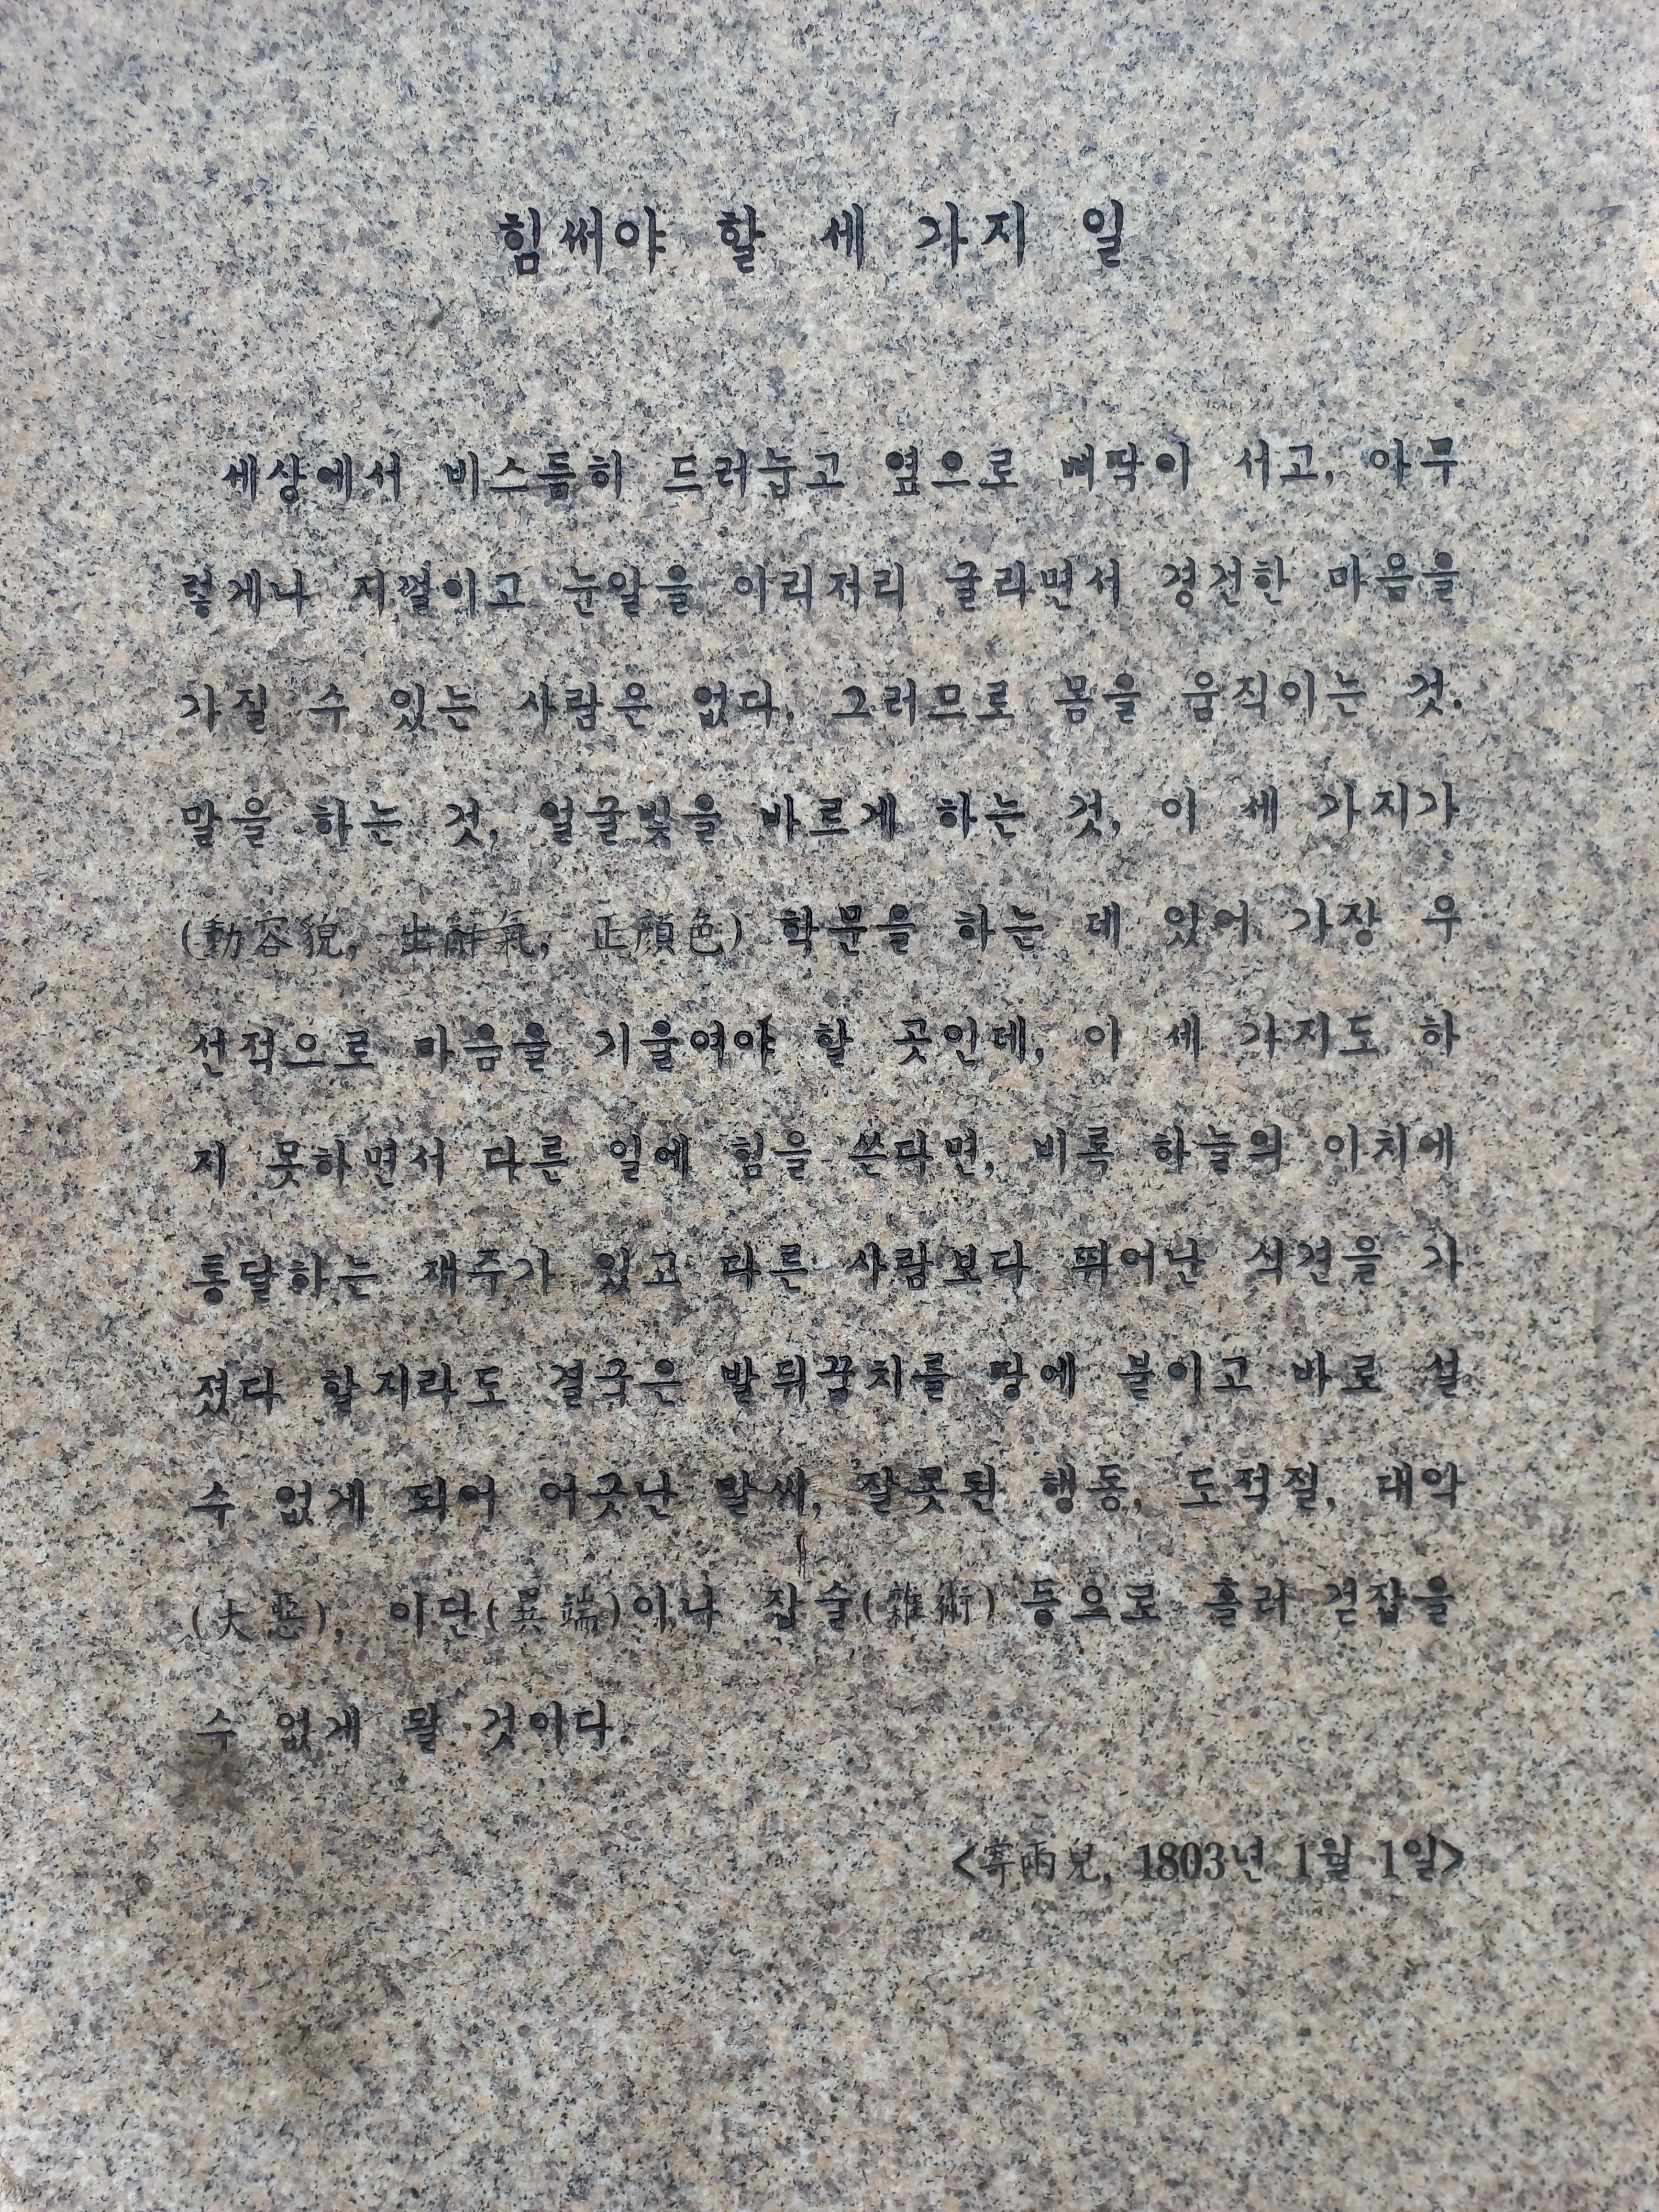 힘써야 할 세 가지 일
세상에서 비스듬히 드러눕고 옆으로 삐딱이 서고, 아무
렇게나 지껄이고 눈알을 이리저리 굴리면서 경건한 마음을
가질 수 있는 사람은 없다. 그러므로 몸을 움직이는 것,
말을 하는 것, 얼굴빛을 바르게 하는 것, 이 세 가지가
(動容貌, 出辭氣, 正顔色) 학문을 하는 데 있어 가장 우
선적으로 마음을 기울여야 할 곳인데, 이 세 가지도 하
지 못하면서 다른 일에 힘을 쓴다면, 비록 하늘의 이치에
통달하는 재주가 있고 다른 사람보다 뛰어난 식견을 가
졌다 할지라도 결국은 발뒤꿈치를 땅에 붙이고 바로 설
수 없게 되어 어긋난 말씨, 잘못된 행동, 도적질, 대악
(大惡), 이단(異端)이나 잡술(雜術) 등으로 흘러 걷잡을
수 없게 될 것이다.
<寄兩兒, 1803년 1월 1일>